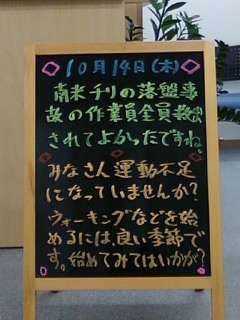 10月14日(木)
南米チリの落盤事
故の作業員全員救出
されてよかったですね。
みなさん運動不足
になっていませんか?
ウォーキングなどを始
めるには、良い季節で
す。始めてみてはいかが?